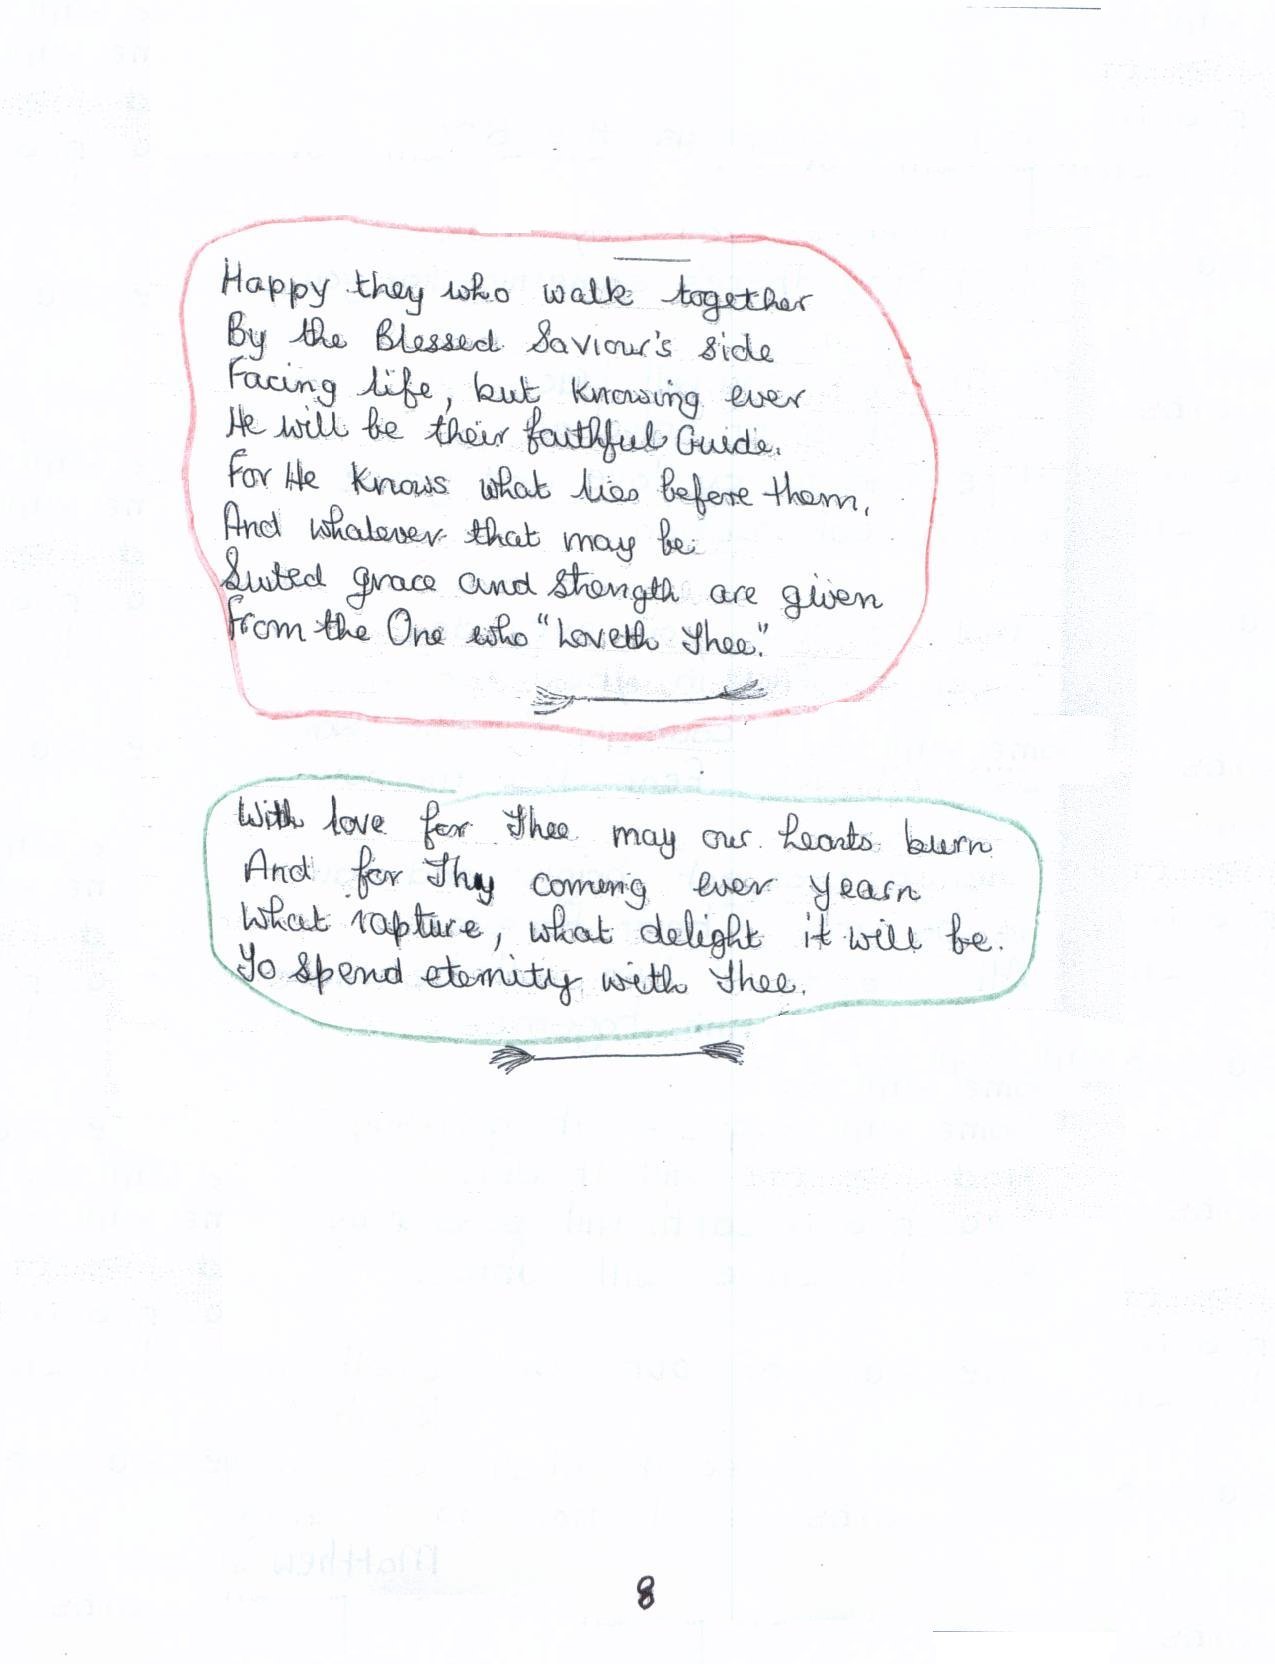 Happy they who walk together
By the Blessed Saviour's side
Facing life, but knowing ever
He will be their faithful Guide.
For He knows what lies before them,
And whatever that may be
Suited grace and strength are given
From the One who "Loveth Thee."
With love for Thee may our hearts burn
And for Thy coming ever yearn
What rapture, what delight it will be.
To spend eternity with Thee.
8